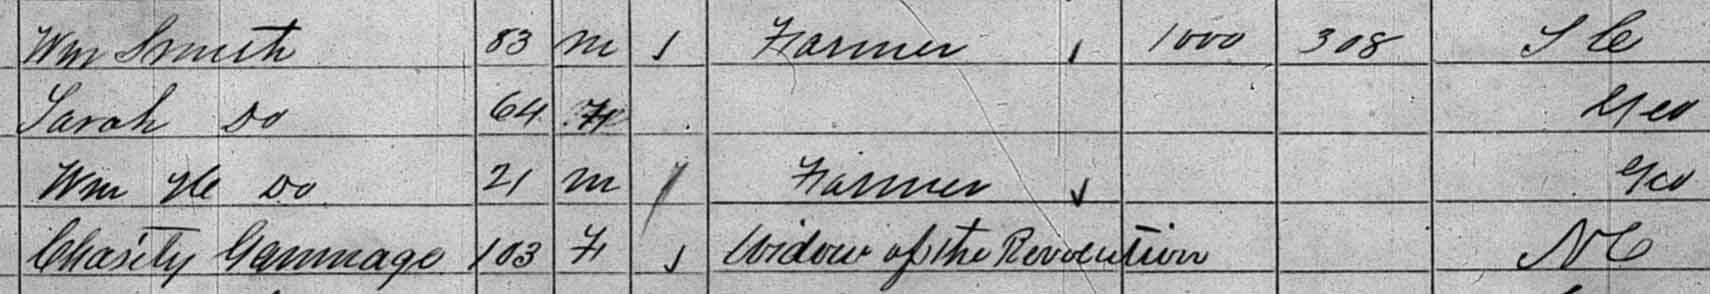 Wm Smith 83 m 1 Farmer 1 1000 308 S C
Sarah Do 64 F Geo
Wm H Do 21 m / Farmer Geo
Charity Gammage 103 F 1 Widow of the Revolution N C